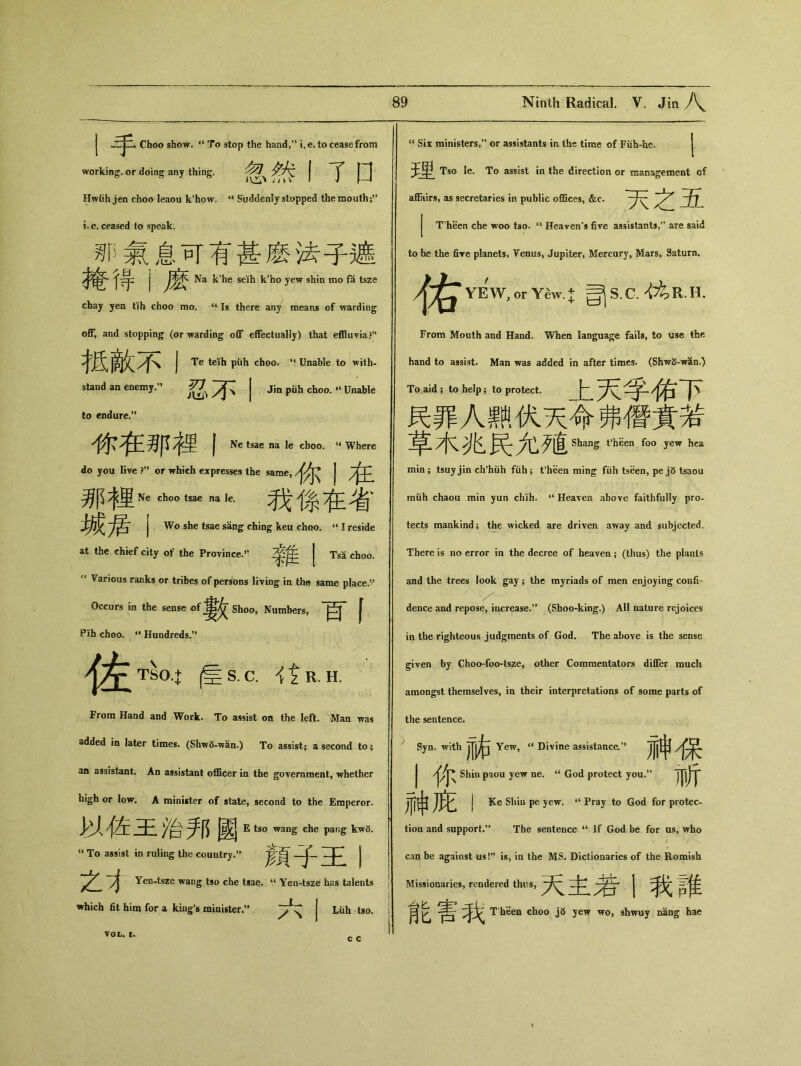 89 Ninth Radical. V. Jin 八
｜手 Choo show. “ To stop the hand,” i. e. to cease from
working. or doing any thing. 忽然｜了口
Hwüh jen choo leaou k’how. “ Suddenly stopped the mouth;”
i. e. ceased to speak.
那氣息可有甚麽法子遮
掩得｜麽 Na k’he seïh k’ho yew shin mo fă tsze
chay yen tĭh choo mo. “ Is there any means of warding
off, and stopping (or warding off effectually) that effluvia?”
抵敵不｜ Te teïh pŭh choo. “ Unable to with-
stand an enemy.” 忍不｜ Jin pŭh choo. “ Unable
to endure.”
你在那裡｜ Ne tsae na le choo. “ Where
do you live ?” or which expresses the same, 你｜在
那裡 Ne choo tsae na le. 我係在省
城居｜ Wo she tsae săng ching keu choo. “ I reside
at the chief city of the Province.” 雜｜ Tsă choo.
“ Various ranks or tribes of persons living in the same place.”
Occurs in the sense of 數 Shoo, Numbers, 百｜
Pĭh choo. “ Hundreds.”
佐 TSO.‡ S. C. R. H.
From Hand and Work. To assist on the left. Man was
added in later times. (Shwŏ-wăn.) To assist; a second to;
an assistant. An assistant officer in the government, whether
high or low. A minister of state, second to the Emperor.
以佐王治邦國 E tso wang che pang kwŏ.
“ To assist in ruling the country.” 顏子王｜
之才 Yen-tsze wang tso che tsae. “ Yen-tsze has talents
which fit him for a king’s minister.” 六｜ Lŭh tso.
VOL. I. C C
“ Six ministers,” or assistants in the time of Fŭh-he. ｜
理 Tso le. To assist in the direction or management of
affairs, as secretaries in public offices, &c. 天之五
｜ T’hëen che woo tso. “ Heaven’s five assistants,” are said
to be the five planets, Venus, Jupiter, Mercury, Mars, Saturn.
佑 YEW, or Yèw.‡ S. C. R. H.
From Mouth and Hand. When language fails, to use the
hand to assist. Man was added in after times. (Shwŏ-wăn.)
To aid ; to help; to protect. 上天孚佑下
民罪人黜伏天命弗僭賁若
草木兆民允殖 Shang t’hëen foo yew hea
min ; tsuy jin ch’hŭh fŭh ; t’hëen ming fŭh tsëen, pe jŏ tsaou
mŭh chaou min yun chĭh. “ Heaven above faithfully pro-
tects mankind; the wicked are driven away and subjected.
There is no error in the decree of heaven ; (thus) the plants
and the trees look gay ; the myriads of men enjoying confi-
dence and repose, increase.” (Shoo-king.) All nature rejoices
in the righteous judgments of God. The above is the sense
given by Choo-foo-tsze, other Commentators differ much
amongst themselves, in their interpretations of some parts of
the sentence.
Syn. with 祐 Yew, “ Divine assistance.” 神保
｜你 Shin paou yew ne. “ God protect you.” 祈
神庇｜ Ke Shin pe yew. “ Pray to God for protec-
tion and support.” The sentence “ If God be for us, who
can be against us!” is, in the MS. Dictionaries of the Romish
Missionaries, rendered thus, 天主若｜我誰
能害我 T’hëen choo jŏ yew wo, shwuy năng hae